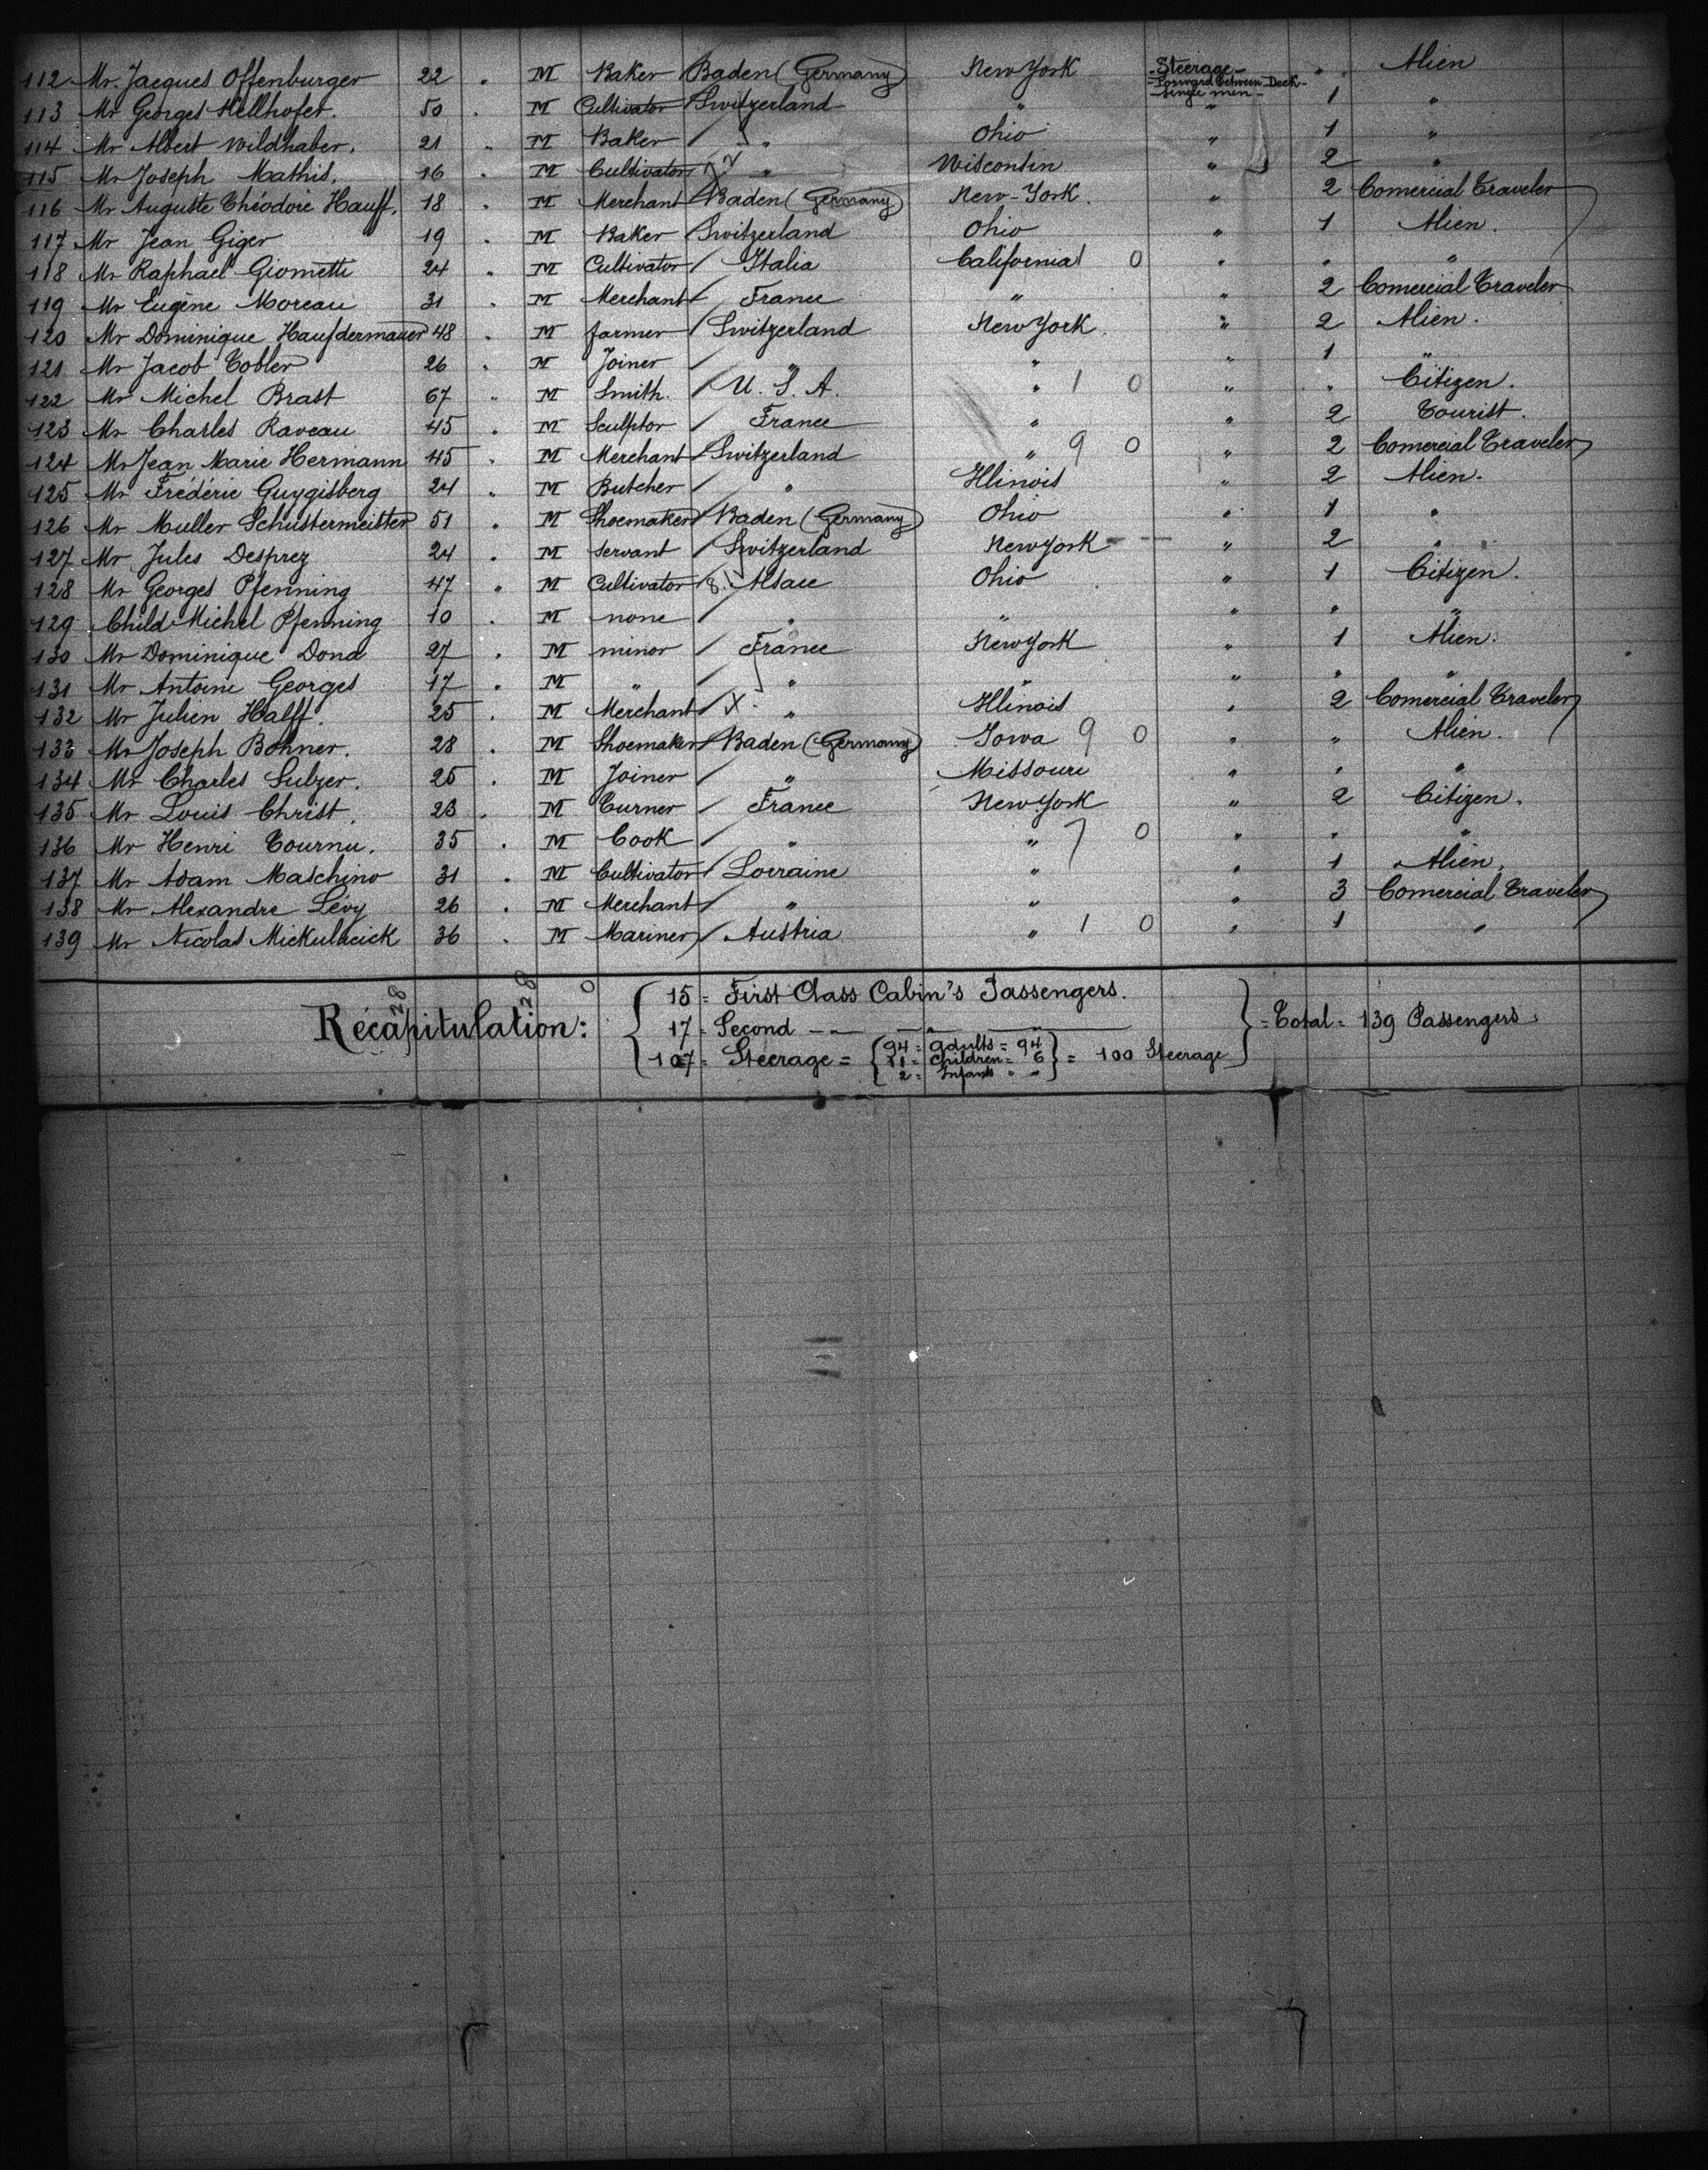 112 Mr. Jacques Offenburger 22 " M Baker Baden (Germany) New York -Steerage- " Alien
-Forward between Deck-
-single men-
113 Mr Georges Hellhofer. 50 " M Cultivator Switzerland " " 1 "
114 Mr Albert Wildhaber. 21 " M Baker " Ohio " 1 "
115 Mr Joseph Mathis. 16 " M Cultivator " Wisconsin " 2 "
116 Mr Auguste Théodore Hauff. 18 " M Merchant Baden (Germany) New-York. " 2 Comercial Traveler
117 Mr Jean Giger 19 " M Baker Switzerland Ohio " 1 Alien.
118 Mr Raphael Giometti 24 " M Cultivator Italia California 1 0 " " "
119 Mr Eugène Moreau 31 " M Merchant France " " 2 Comercial Traveler
120 Mr Dominique Haufdermauer 48 " M farmer Switzerland New York. " 2 Alien.
121 Mr Jacob Tobler 26 " M Joiner " " " 1 "
122 Mr Michel Brast 67 " M Smith. U. S. A. " 1 0 " " Citizen.
123 Mr Charles Raveau 45 " M Sculptor France " " 2 Tourist.
124 Mr Jean Marie Hermann 45 " M Merchant Switzerland " 9 0 " 2 Comercial Traveler
125 Mr Frédéric Guygisberg 24 " M Butcher " Illinois " 2 Alien.
126 Mr Muller Schustermeister 51 " M Shoemaker Baden (Germany) Ohio " 1 "
127 Mr Jules Desprez 24 " M servant Switzerland New York " 2 "
128 Mr Georges Pfenning 47 " M Cultivator Alsace Ohio " 1 Citizen.
129 Child Michel Pfenning 10 " M none " " " " "
130 Mr Dominique Dona 27 " M minor France New York " 1 Alien.
131 Mr Antoine Georges 17 " M " " " " " "
132 Mr Julien Halff. 25 " M Merchant X " Illinois " 2 Comercial Traveler
133 Mr Joseph Bohner. 28 " M Shoemaker Baden (Germany) Iowa 9 0 " " Alien.
134 Mr Charles Sulzer. 25 " M Joiner " Missouri " " "
135 Mr Louis Christ. 23 " M Turner France New York " 2 Citizen.
136 Mr Henri Tournu. 35 " M Cook " " 7 0 " " "
137 Mr Adam Maschino 31 " M Cultivator Lorraine " " 1 Alien.
138 Mr Alexandre Lévy 26 " M Merchant " " " 3 Comercial Traveler
139 Mr Nicolas 36 " M Mariner Austria " 1 0 " 1 "
28 28 0
Récapitulation:
15 = First Class Cabin's Passengers.
17 = Second — " — — " —
107 = Steerage = {94 = adults = 94
11 = Children = 6
2 = Infants " "} = 100 Steerage
= Total = 139 Passengers